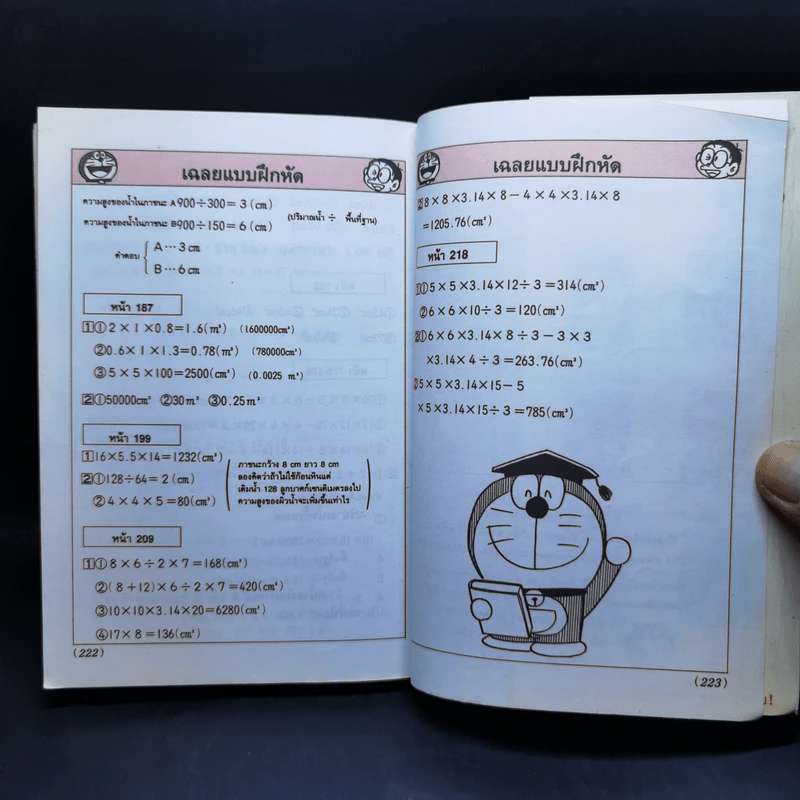 เฉลยแบบฝึกหัด
ความสูงของน้ำในภาชนะ A900÷300=3(cm)
ความสูงของน้ำในภาชนะ B900÷150=6(cm)
(ปริมาณน้ำ ÷ พื้นที่ฐาน)
คำตอบ { A…3 cm
B…6 cm
หน้า 187
1①2×1×0.8=1.6(m³) (1600000cm³)
②0.6×1×1.3=0.78(m³) (780000cm³)
③5×5×100=2500(cm³) (0.0025 m³)
2①50000cm³ ②30m³ ③0.25m³
หน้า 199
1 16×5.5×14=1232(cm³)
2①128÷64=2(cm)
②4×4×5=80(cm³)
(ภาชนะกว้าง 8 cm ยาว 8 cm
ลองคิดว่าถ้าไม่ใช้ก้อนหินแต่
เติมน้ำ 128 ลูกบาศก์เซนติเมตรลงไป
ความสูงของผิวน้ำจะเพิ่มขึ้นเท่าไร)
หน้า 209
1①8×6÷2×7=168(cm³)
②(8+12)×6÷2×7=420(cm³)
③10×10×3.14×20=6280(cm³)
④17×8=136(cm³)
(222)
เฉลยแบบฝึกหัด
8×8×3.14×8−4×4×3.14×8
=1205.76(cm³)
หน้า 218
①5×5×3.14×12÷3=314(cm³)
②6×6×10÷3=120(cm³)
①6×6×3.14×8÷3−3×3
×3.14×4÷3=263.76(cm³)
5×5×3.14×15−5
×5×3.14×15÷3=785(cm³)
(223)